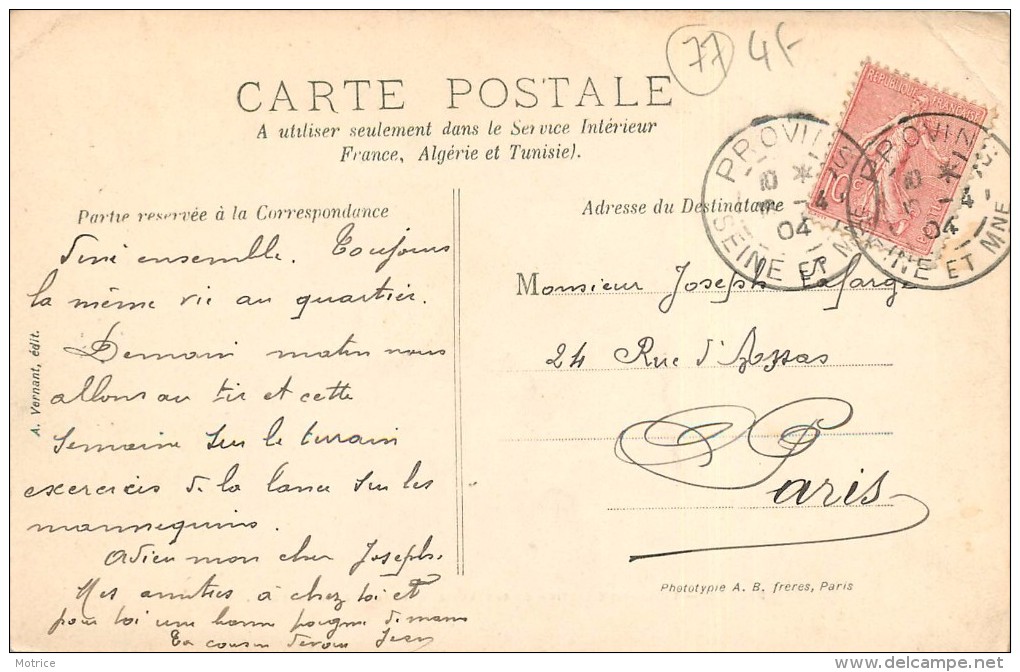 77 4F
CARTE POSTALE
A utiliser seulement dans le Service Intérieur
France, Algérie et Tunisie).
RÉPUBLIQUE FRANÇAISE
10 c
PROVINS
* 1
4
04
SEINE ET MNE
PROVINS
* 1
4
04
SEINE ET MNE
Partie reservée à la Correspondance
Adresse du Destinataire
diné ensemble. Toujours
la même vie au quartier.
Demain matin nous
allons au tir et cette
semaine sur le terrain
exercices de la lance sur les
mannequins.
Adieu mon cher Joseph.
Mes amitiés à chez toi et
pour toi une bonne poignée de mains
Ton cousin Jean
Monsieur Joseph Lafarge
24 Rue d'Assas
Paris
A. Vernant, édit.
Phototypie A. B. freres, Paris
Motrice
delcampe.net